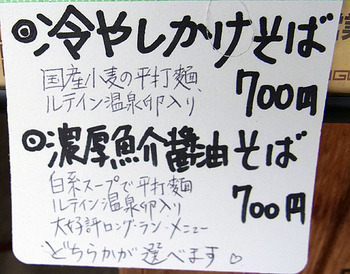 ◎冷やしかけそば
国産小麦の平打麵、
ルテイン温泉卵入り
700円
◎濃厚魚介醤油そば
白系スープで平打麵
ルテイン温泉卵入り
大好評ロング・ラン・メニュー
700円
どちらかが選べます♡